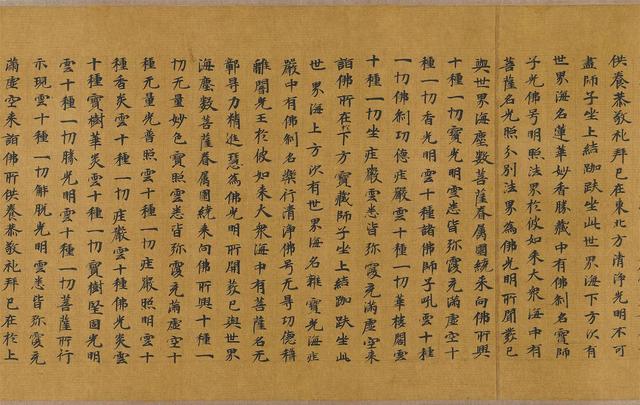 供養恭敬礼拜已在東北方清淨光明不可
盡師子坐上結跏趺坐此世界海下方次有
世界海名蓮華妙香勝藏中有佛刹名寶師
子光佛号明照法界於彼如来大衆海中有
菩薩名光照分別法界為佛光明所開發已
與世界海塵數菩薩眷属圍繞来向佛所興
十種一切寶光明雲悉皆弥覆充滿虚空十
種一切香光明雲十種諸佛師子吼雲十種
一切佛刹功德莊嚴雲十種一切華樓閣雲
十種一切坐莊嚴雲悉皆弥覆充滿虚空来
詣佛所在下方寶藏師子坐上結跏趺坐此
世界海上方次有世界海名雜寶光海莊
嚴中有佛刹名樂行清淨佛号无㝵功德稱
離闇光王於彼如来大衆海中有菩薩名无
鄣㝵力精進慧為佛光明所開發已與世界
海塵數菩薩眷属圍繞来向佛所興十種一
切无量妙色寶照雲悉皆弥覆充滿虚空十
種无量光普照雲十種一切莊嚴照明雲十
種香炎雲十種一切莊嚴雲十種佛光炎雲
十種寶樹華炎雲十種一切寶樹堅固光明
雲十種一切勝光明雲十種一切菩薩所行
示現雲十種一切解脫光明雲悉皆弥覆充
滿虚空来詣佛所供養恭敬礼拜已在於上